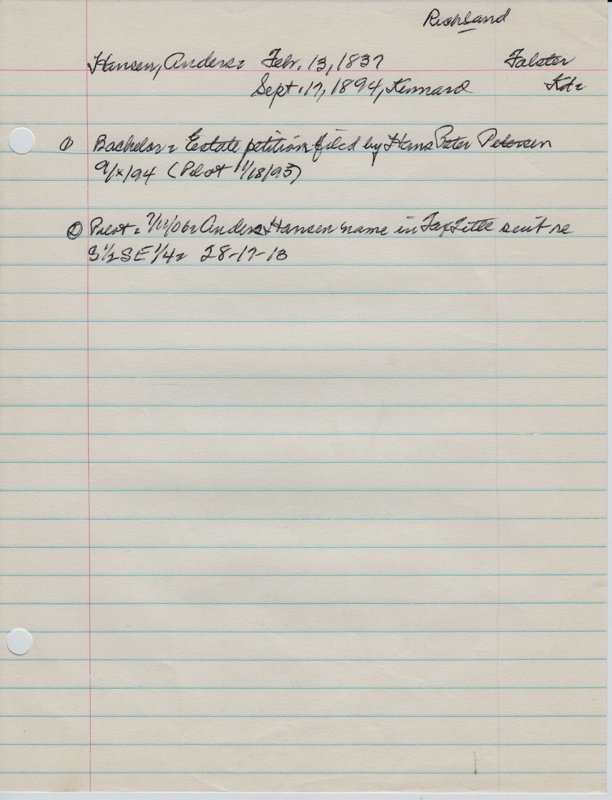 Richland
Hansen, Anders = Febr. 13, 1837 Falster
Sept. 17, 1894, Kennard
① Bachelor = Estate petition filed by Hans Peter Petersen
9/x/94 (Pilot 1/18/95)
② Pilot = Anders Hansen name in Tax Title suit re
S 1/2 SE 1/4 = 28-17-